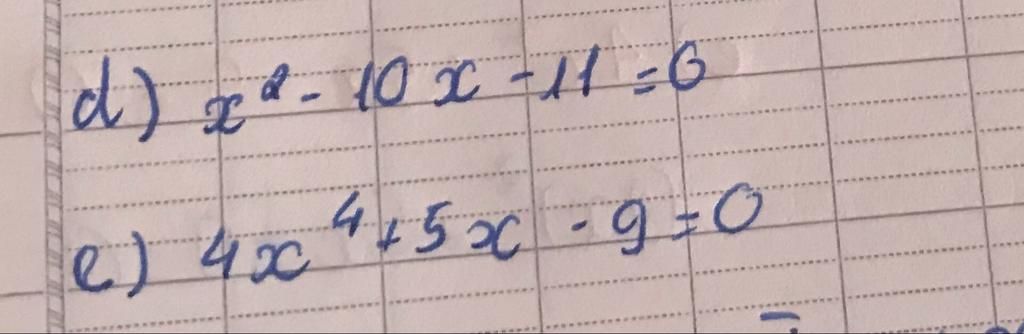 d) x² - 10x - 11 = 0
e) 4x⁴ + 5x - 9 = 0